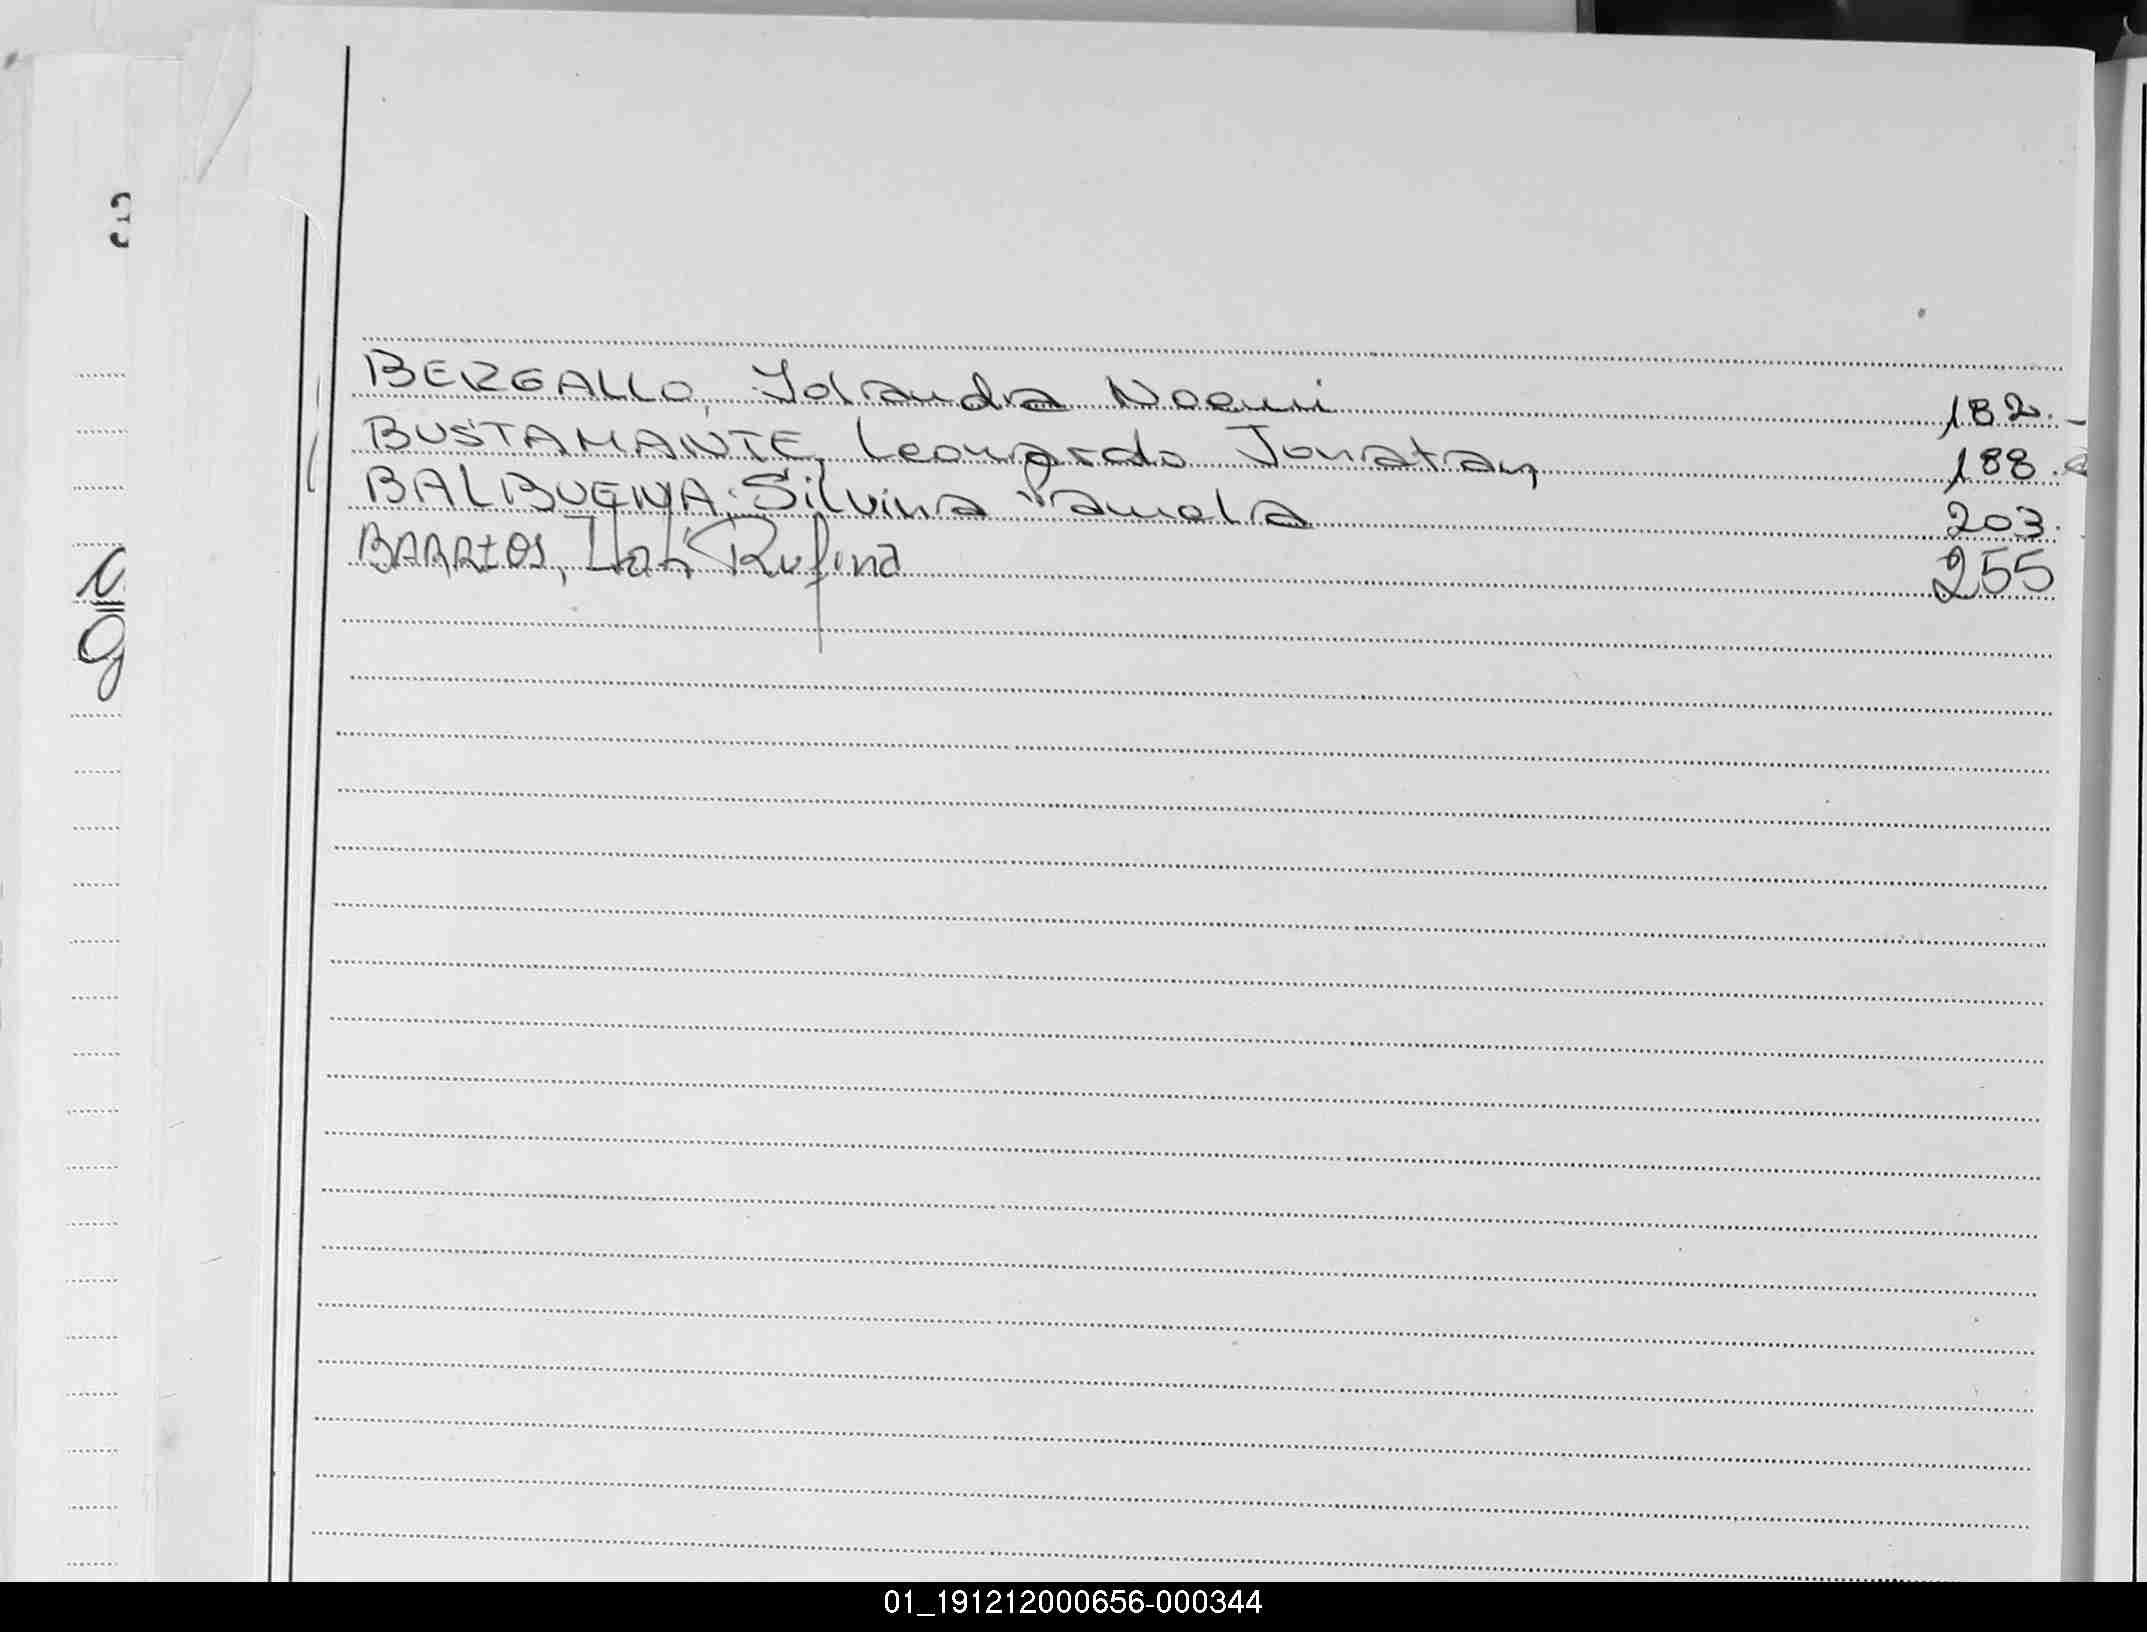 BERGALLO, Yolanda Noemi 182.
BUSTAMANTE, Leonardo Jonatan 188.
BALBUENA, Silvina Pamela 203.
BARRIOS, Rufina 255
01_191212000656-000344